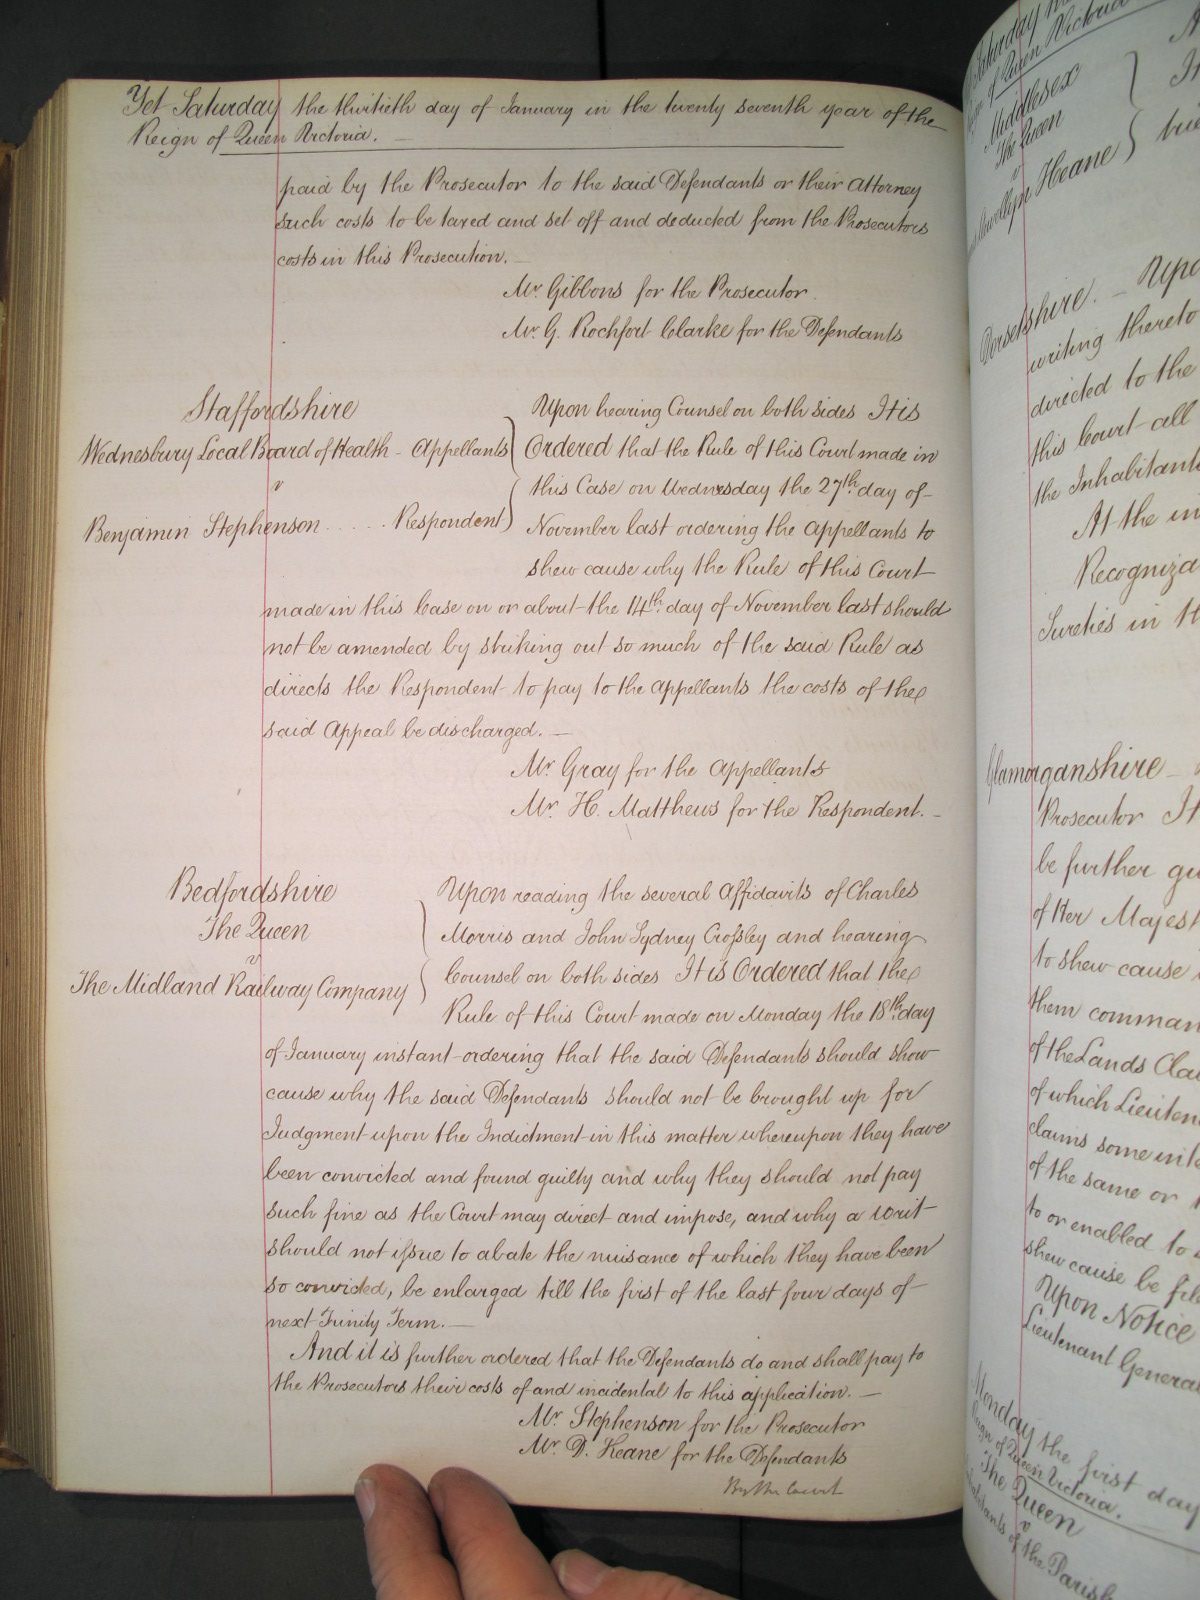 Yet Saturday the thirtieth day of January in the twenty seventh year of the
Reign of Queen Victoria. —
paid by the Prosecutor to the said Defendants or their Attorney
such costs to be taxed and set off and deducted from the Prosecutors
costs in this Prosecution. —
Mr. Gibbons for the Prosecutor.
Mr. G. Rochfort Clarke for the Defendants
Staffordshire
Wednesbury Local Board of Health - Appellants
v
Benjamin Stephenson ..... Respondent
Upon hearing Counsel on both sides It is
Ordered that the Rule of this Court made in
this Case on Wednesday the 27th. day of
November last ordering the Appellants to
shew cause why the Rule of this Court
made in this Case on or about the 14th. day of November last should
not be amended by striking out so much of the said Rule as
directs the Respondent to pay to the Appellants the costs of the
said Appeal be discharged. —
Mr. Gray for the Appellants
Mr. H. Matthews for the Respondent. -
Bedfordshire
The Queen
v
The Midland Railway Company
Upon reading the several Affidavits of Charles
Morris and John Sydney Crossley and hearing
Counsel on both sides It is Ordered that the
Rule of this Court made on Monday the 18th. day
of January instant ordering that the said Defendants should show
cause why the said Defendants should not be brought up for
Judgment upon the Indictment in this matter whereupon they have
been convicted and found guilty and why they should not pay
such fine as the Court may direct and impose, and why a writ
should not issue to abate the nuisance of which they have been
so convicted, be enlarged till the first of the last four days of
next Trinity Term. —
And it is further ordered that the Defendants do and shall pay to
the Prosecutors their costs of and incidental to this application. —
Mr. Stephenson for the Prosecutor
Mr. D. Keane for the Defendants
By the Court
Saturday
of Queen Victoria
Middlesex
The Queen
v
Llewellyn Heane
Dorsetshire. - Upo
writing thereto
directed to the
this Court all
the Inhabitant
At the in
Recogniza
Sureties in th
Glamorganshire -
Prosecutor It
be further gu
of Her Majest
to shew cause
them comman
of the Lands Cla
of which Lieuten
claims some inte
of the same or
to or enabled to
shew cause be fil
Upon Notice
Lieutenant Genera
Monday the first day
Reign of Queen Victoria.
The Queen
v
Inhabitants of the Parish